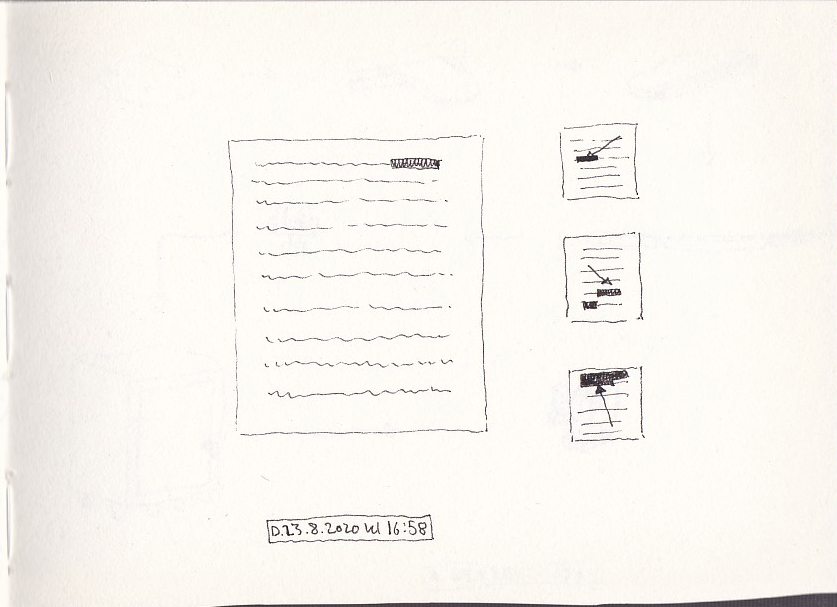 D.23.8.2020 W 16:58